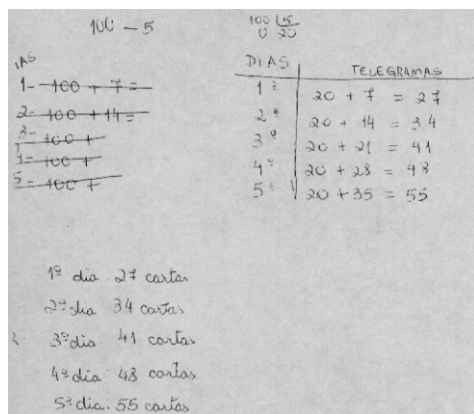 100 - 5
IAS
1- 100 + 7 =
2- 100 + 14 =
3- 100 +
4- 100 +
5- 100 +
100 |5
0 20
DIAS TELEGRAMAS
1º 20 + 7 = 27
2º 20 + 14 = 34
3º 20 + 21 = 41
4º 20 + 28 = 48
5º 20 + 35 = 55
1º dia 27 cartas
2º dia 34 cartas
3º dia 41 cartas
4º dia 48 cartas
5º dia. 55 cartas